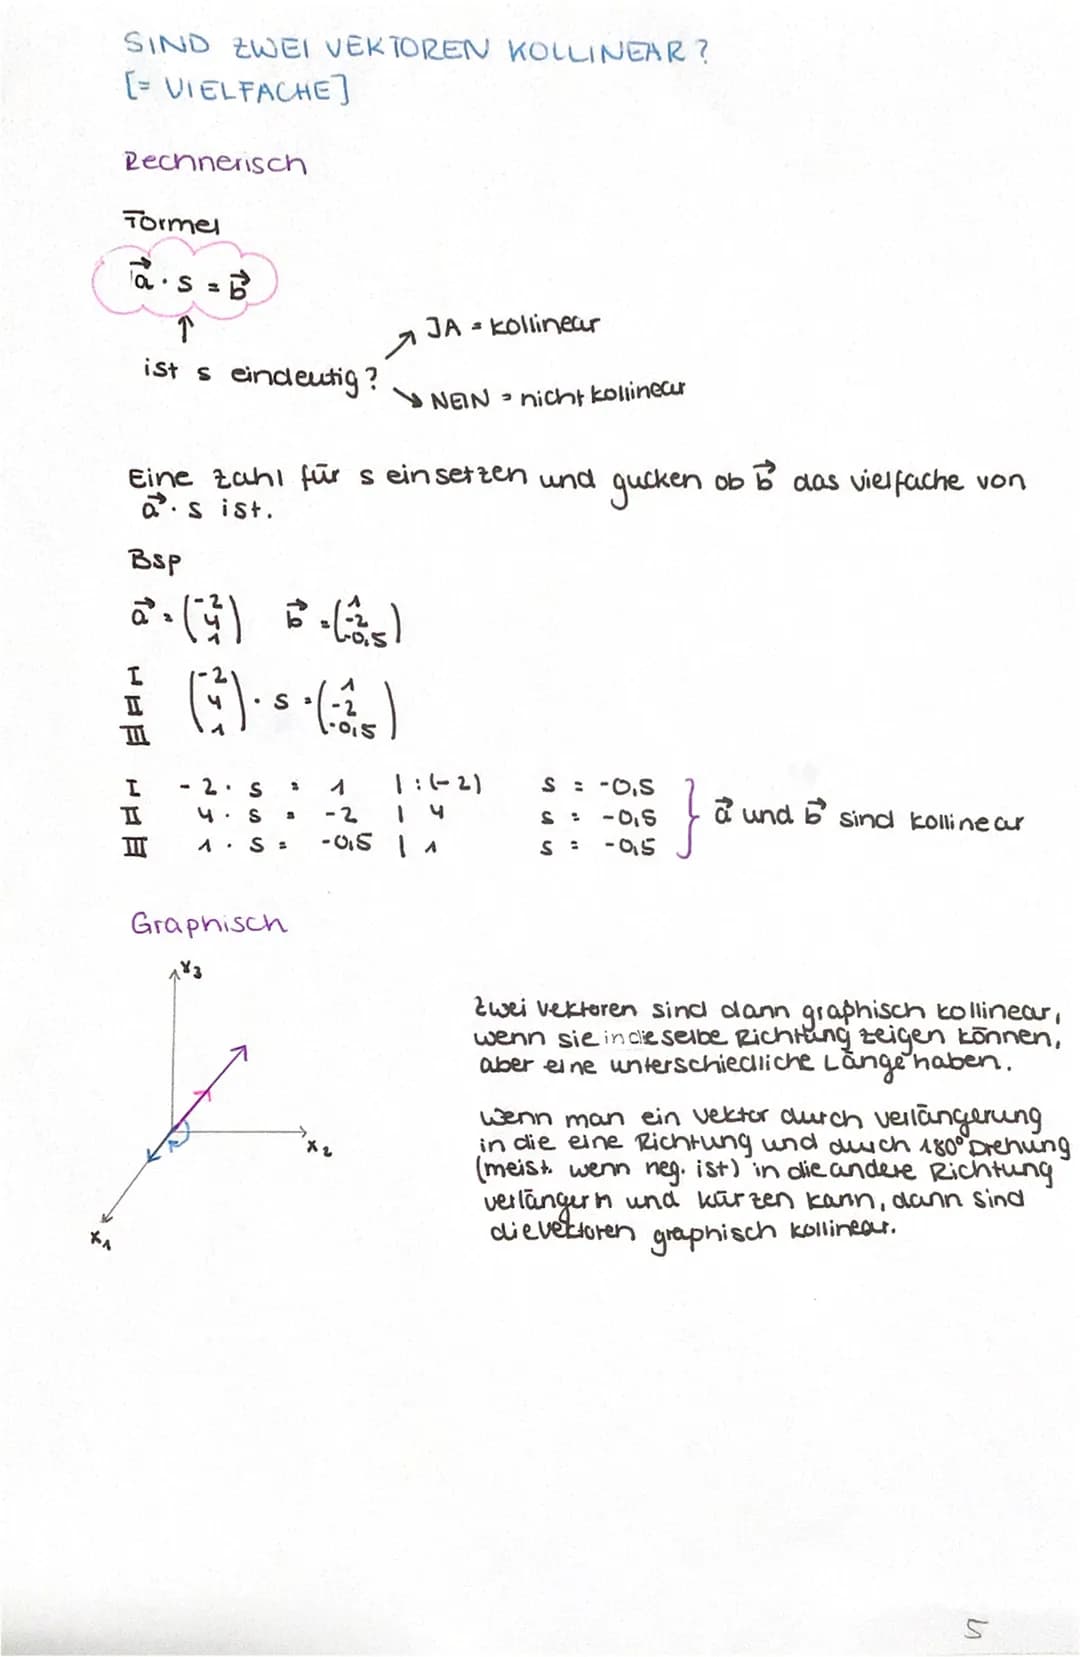 SIND ZWEI VEKTOREN KOLLINEAR?
[= VIELFACHE]
Rechnerisch
Formel
a⃗ · s = b⃗
↑
ist s eindeutig?
↗ JA = kollinear
↘ NEIN = nicht kollinear
Eine zahl für s einsetzen und gucken ob b⃗ das vielfache von
a⃗ · s ist.
Bsp
a⃗ = (-2 4 1) b⃗ = (1 -2 -0,5)
I II III (-2 4 1) · s = (1 -2 -0,5)
I -2 · s = 1 | :(-2) s = -0,5
II 4 · s = -2 | 4 s = -0,5 } a⃗ und b⃗ sind kollinear
III 1 · s = -0,5 | 1 s = -0,5
Graphisch
x3
x2
x1
Zwei Vektoren sind dann graphisch kollinear,
wenn sie in dieselbe Richtung zeigen können,
aber eine unterschiedliche Länge haben.
Wenn man ein Vektor durch verlängerung
in die eine Richtung und durch 180° Drehung
(meist wenn neg. ist) in die andere Richtung
verlängern und kürzen kann, dann sind
die vektoren graphisch kollinear.
5